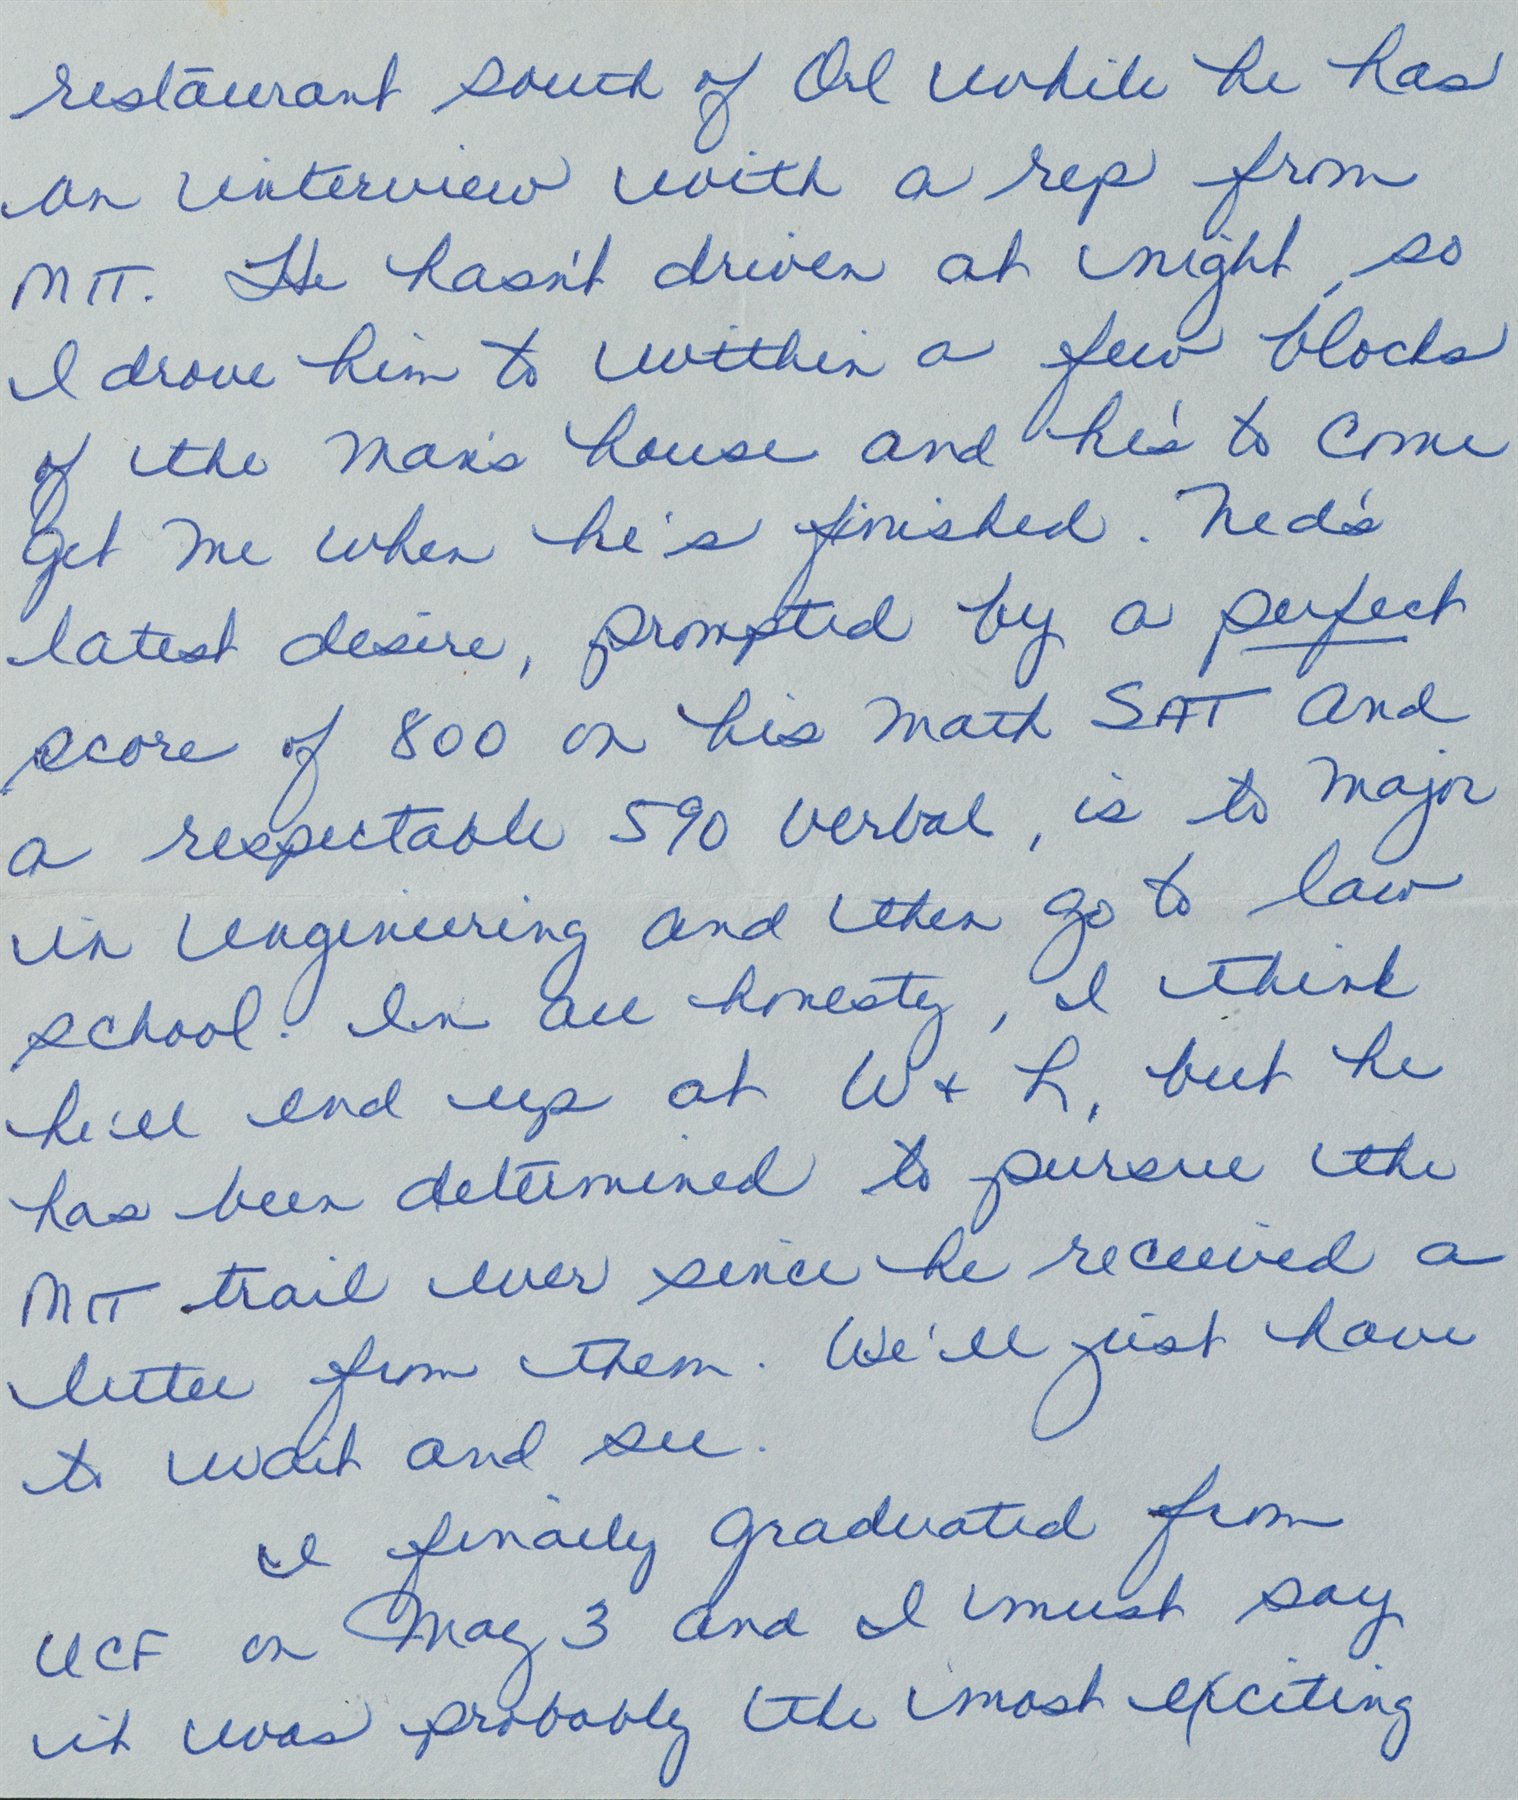 restaurant south of Orl while he has
an interview with a rep from
MIT. He hasn't driven at night, so
I drove him to within a few blocks
of the man's house and he's to come
get me when he's finished. Ned's
latest desire, prompted by a perfect
score of 800 on his math SAT and
a respectable 590 verbal, is to major
in engineering and then go to law
school. In all honesty, I think
he'll end up at W + L, but he
has been determined to pursue the
MIT trail ever since he received a
letter from them. We'll just have
to wait and see.
I finally graduated from
UCF on May 3 and I must say
it was probably the most exciting